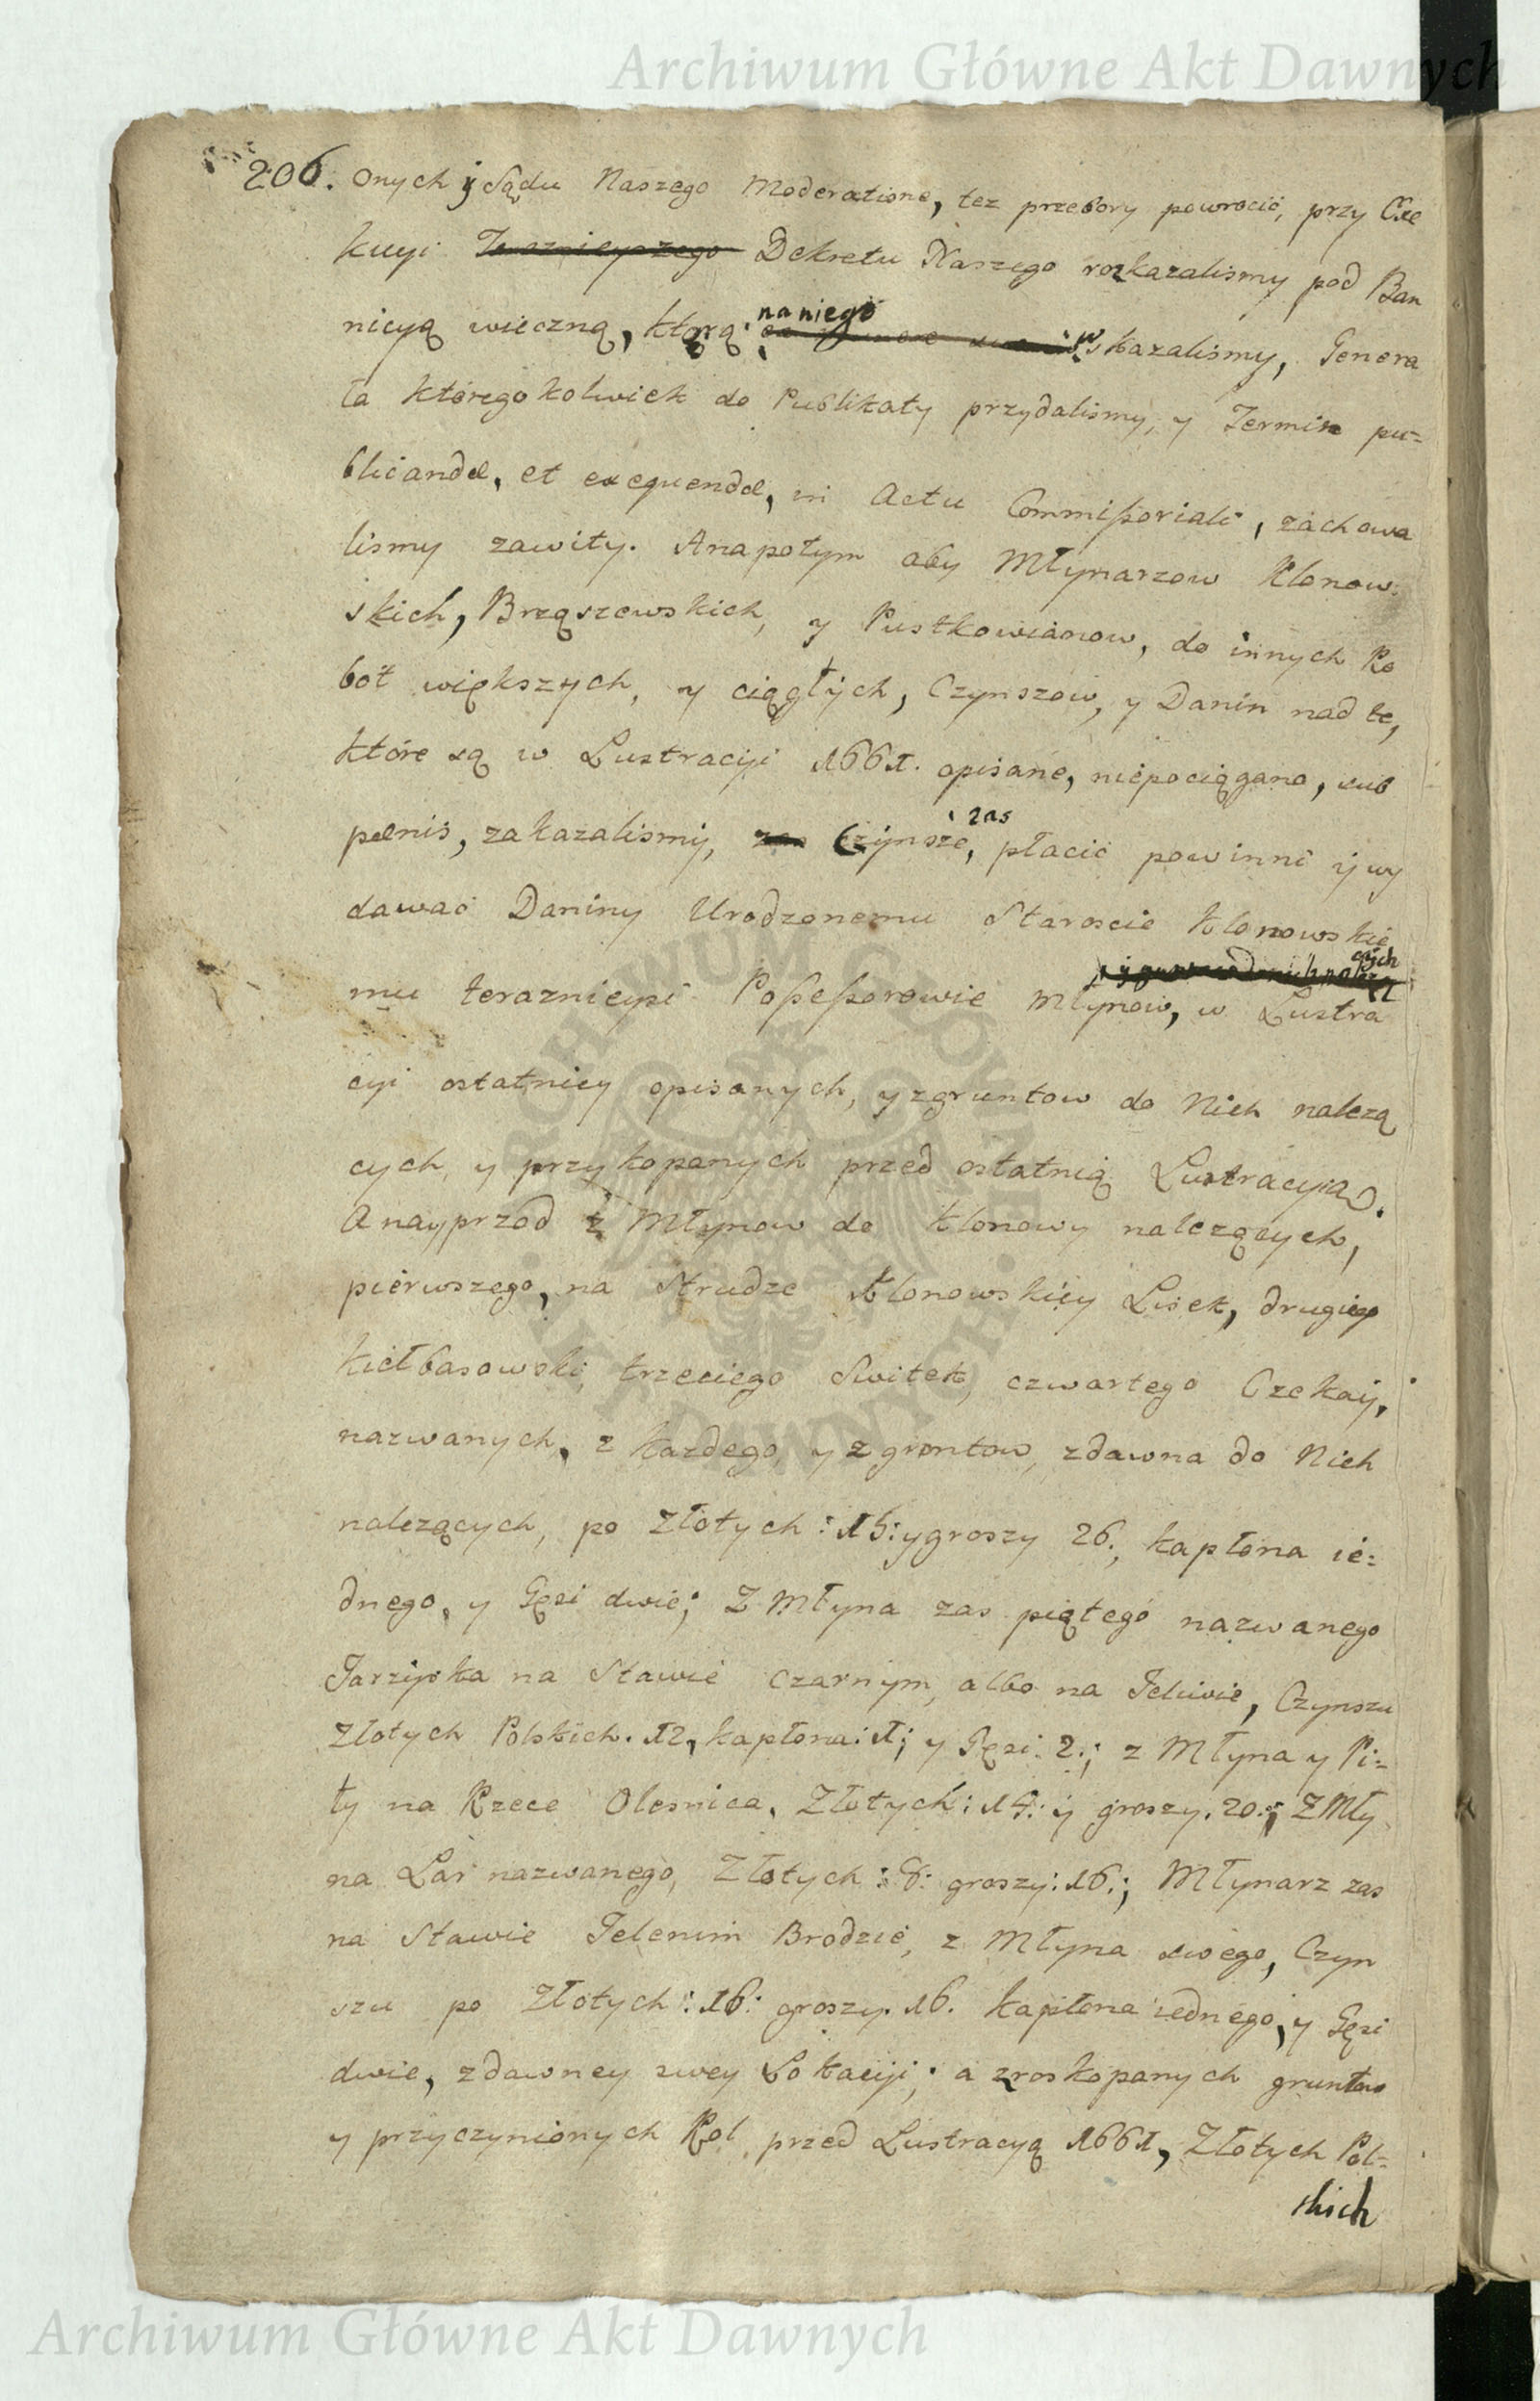 Archiwum Główne Akt Dawnych
206. onych y Sądu Naszego Moderatione, tez przebory powrocić, przy Exe
kucyi Teraznieyszego Dekretu Naszego rozkazalismy pod Ban
nicyą wieczną, którą na niego wskazalismy, Genera
ła któregokolwiek do Publikaty przydalismy, y Termin pu=
blicandæ, et exequendæ, in Actu Commißoriali, zachowa
lismy zawity. Anapotym aby Młynarzow Klonow
skich, Brząszewskich, y Pustkowianow, do innych Ro
bot większych, y ciągłych, Czynszow, y Danin nad te,
które są w Lustracyi 1661. opisane, niepociągano, sub
pœnis, zakazalismy, zas Czynsze, zas płacić powinni y wy
dawać Daniny Urodzonemu Staroscie Klonowskie
mu teraznieysi Poßeßorowie Młynow, w Lustra
cyi ostatniey opisanych, y zgruntow do Nich należą
cych, y przykopanych przed ostatnią Lustracyią.
A nayprzod z Młynow do Klonowy należących,
pierwszego, na Strudze Klonowskiey Lisek, drugiego
Kiełbasowski, trzeciego Switek, czwartego Czekay,
nazwanych, z każdego y z grontow, zdawna do Nich
należących, po Złotych : 15: y groszy 26., kapłona ie=
dnego, y Gęsi dwie; Z Młyna zas piątego nazwanego
Jarzyska na Stawie Czarnym, albo na, Czynszu
Złotych Polskich. 12, kapłona: 1; y Gęsi: 2.; z Młyna y Pi=
ły na Rzece Olesnica, Złotych: 14: y groszy. 20.; Z Mły
na Las nazwanego, Złotych : 8: groszy: 16.; Młynarz zas
na Stawie Jelenim Brodzie, z Młyna swego, Czyn
szu po Złotych : 16: groszy. 16. kapłona iednego, y Gęsi
dwie, zdawney swey Lokacyi; a zroskopanych gruntow
y przyczynionych Rol przed Lustracyą 1661, Złotych Pol=
skich
Archiwum Główne Akt Dawnych